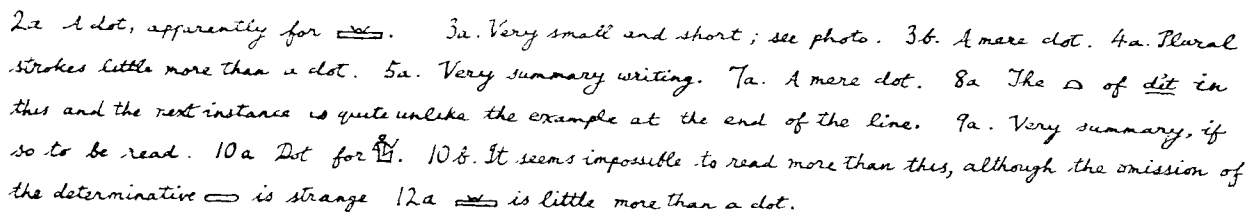 2a A dot, apparently for . 3a. Very small and short; see photo. 3b. A mere dot. 4a. Plural
strokes little more than a dot. 5a. Very summary writing. 7a. A mere dot. 8a The of dit in
this and the next instance is quite unlike the example at the end of the line. 9a. Very summary, if
so to be read. 10a Dot for . 10b. It seems impossible to read more than this, although the omission of
the determinative is strange 12a is little more than a dot.